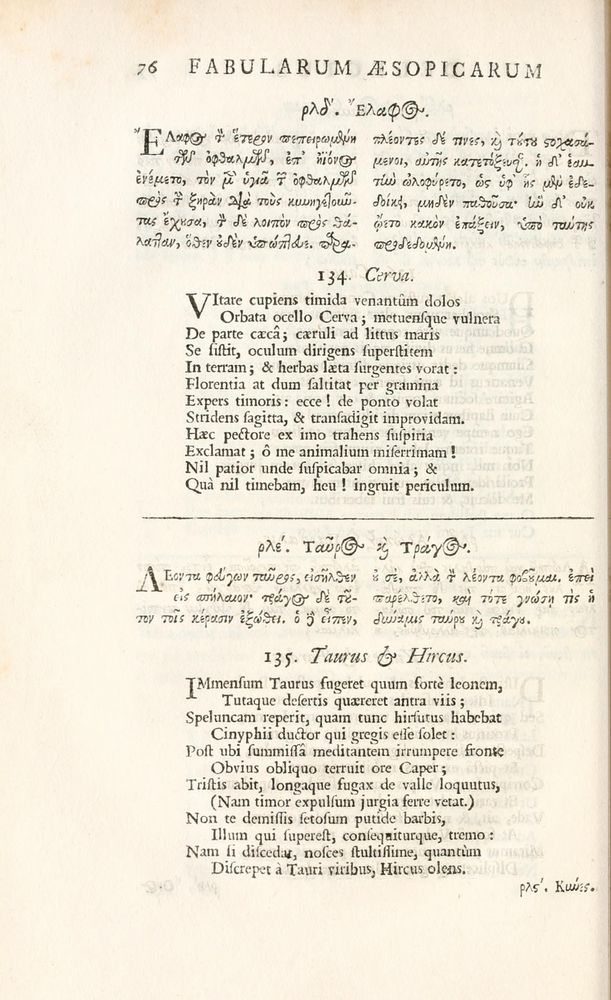 76 FABULARUM ÆSOPICARUM
ρλδʹ. Ἔλαφος.
ἜΛαφος τὸν ἕτερον πεπηρωμένη
τῶν ὀφθαλμῶν, ἐπʼ ἠϊόνος
ἐνέμετο, τὸν μὲν ὑγιᾶ τῶν ὀφθαλμῶν
πρὸς τὴν ξηρὰν διὰ τοὺς κυνηγέτας
ἔχουσα, τὸν δὲ λοιπὸν πρὸς θά-
λατταν, ὅθεν οὐδὲν ὑπώπτευε. παρα-
πλέοντες δέ τινες, καὶ τοῦτο στοχασά-
μενοι, αὐτῆς κατετόξευσαν. ἡ δʼ ἑαυ-
τὴν ὠλοφύρετο, ὡς ὑφʼ ἧς μὲν ἐδε-
δοίκει, μηδὲν παθοῦσα· ἣν δʼ οὐκ
ᾤετο κακὸν ἐπάξειν, ὑπὸ ταύτης
προδεδομένη.
134. Cerva.
VItare cupiens timida venantûm dolos
Orbata ocello Cerva; metuensque vulnera
De parte cæcâ; cæruli ad littus maris
Se ſiſtit, oculum dirigens ſuperſtitem
In terram; & herbas læta ſurgentes vorat:
Florentia at dum ſaltitat per gramina
Expers timoris: ecce! de ponto volat
Stridens ſagitta, & tranſadigit improvidam.
Hæc pectore ex imo trahens ſuſpiria
Exclamat; ô me animalium miſerrimam!
Nil patior unde ſuſpicabar omnia; &
Quà nil timebam, heu! ingruit periculum.
ρλεʹ. Ταῦρος καὶ Τράγος.
ΛΕοντα φεύγων ταῦρος, εἰσῆλθεν
εἰς σπήλαιον· τράγος δὲ τοῦ-
τον τοῖς κέρασιν ἐξώθει. ὁ δὲ εἶπεν,
οὐ σὲ, ἀλλὰ τὸν λέοντα φοβοῦμαι. ἐπεὶ
παρελθέτω, καὶ τότε γνώσῃ τίς ἡ
δύναμις ταύρου καὶ τράγου.
135. Taurus & Hircus.
IMmenſum Taurus fugeret quum fortè leonem,
Tutaque deſertis quæreret antra viis;
Speluncam reperit, quam tunc hirſutus habebat
Cinyphii ductor qui gregis eſſe ſolet:
Poſt ubi ſummiſſâ meditantem irrumpere fronte
Obvius obliquo terruit ore Caper;
Triſtis abit, longaque fugax de valle loquutus,
(Nam timor expulſum jurgia ferre vetat.)
Non te demiſſis ſetoſum putide barbis,
Illum qui ſupereſt, conſequiturque, tremo:
Nam ſi diſcedat, noſces ſtultiſſime, quantùm
Diſcrepet à Tauri viribus, Hircus olens.
ρλςʹ. Κύνες.